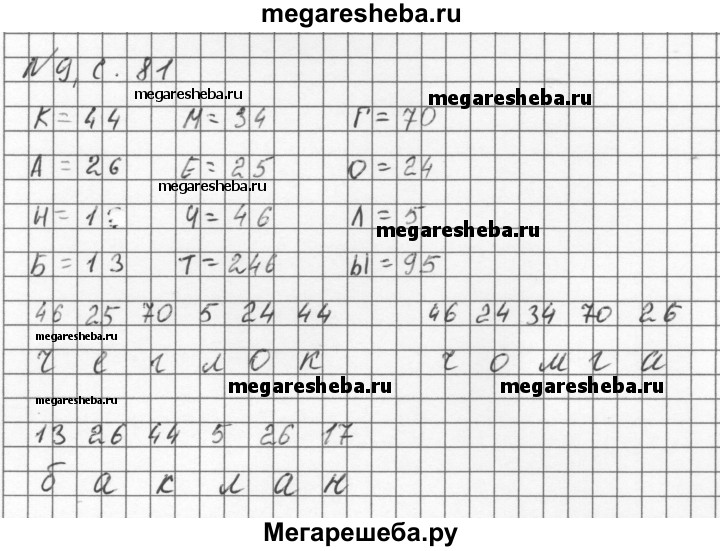 megaresheba.ru
№9, с. 81
megaresheba.ru megaresheba.ru
К = 44 М = 34 Г = 70
А = 26 Е = 25 О = 24
megaresheba.ru
Н = Ч = 46 Л = 5
megaresheba.ru
Б = 13 Т = 246 Ы = 95
46 25 70 5 24 44 46 24 34 70 26
megaresheba.ru
ч е г л о к ч о м г а
megaresheba.ru megaresheba.ru
megaresheba.ru
13 26 44 5 26 17
б а к л а н
Мегарешеба.ру